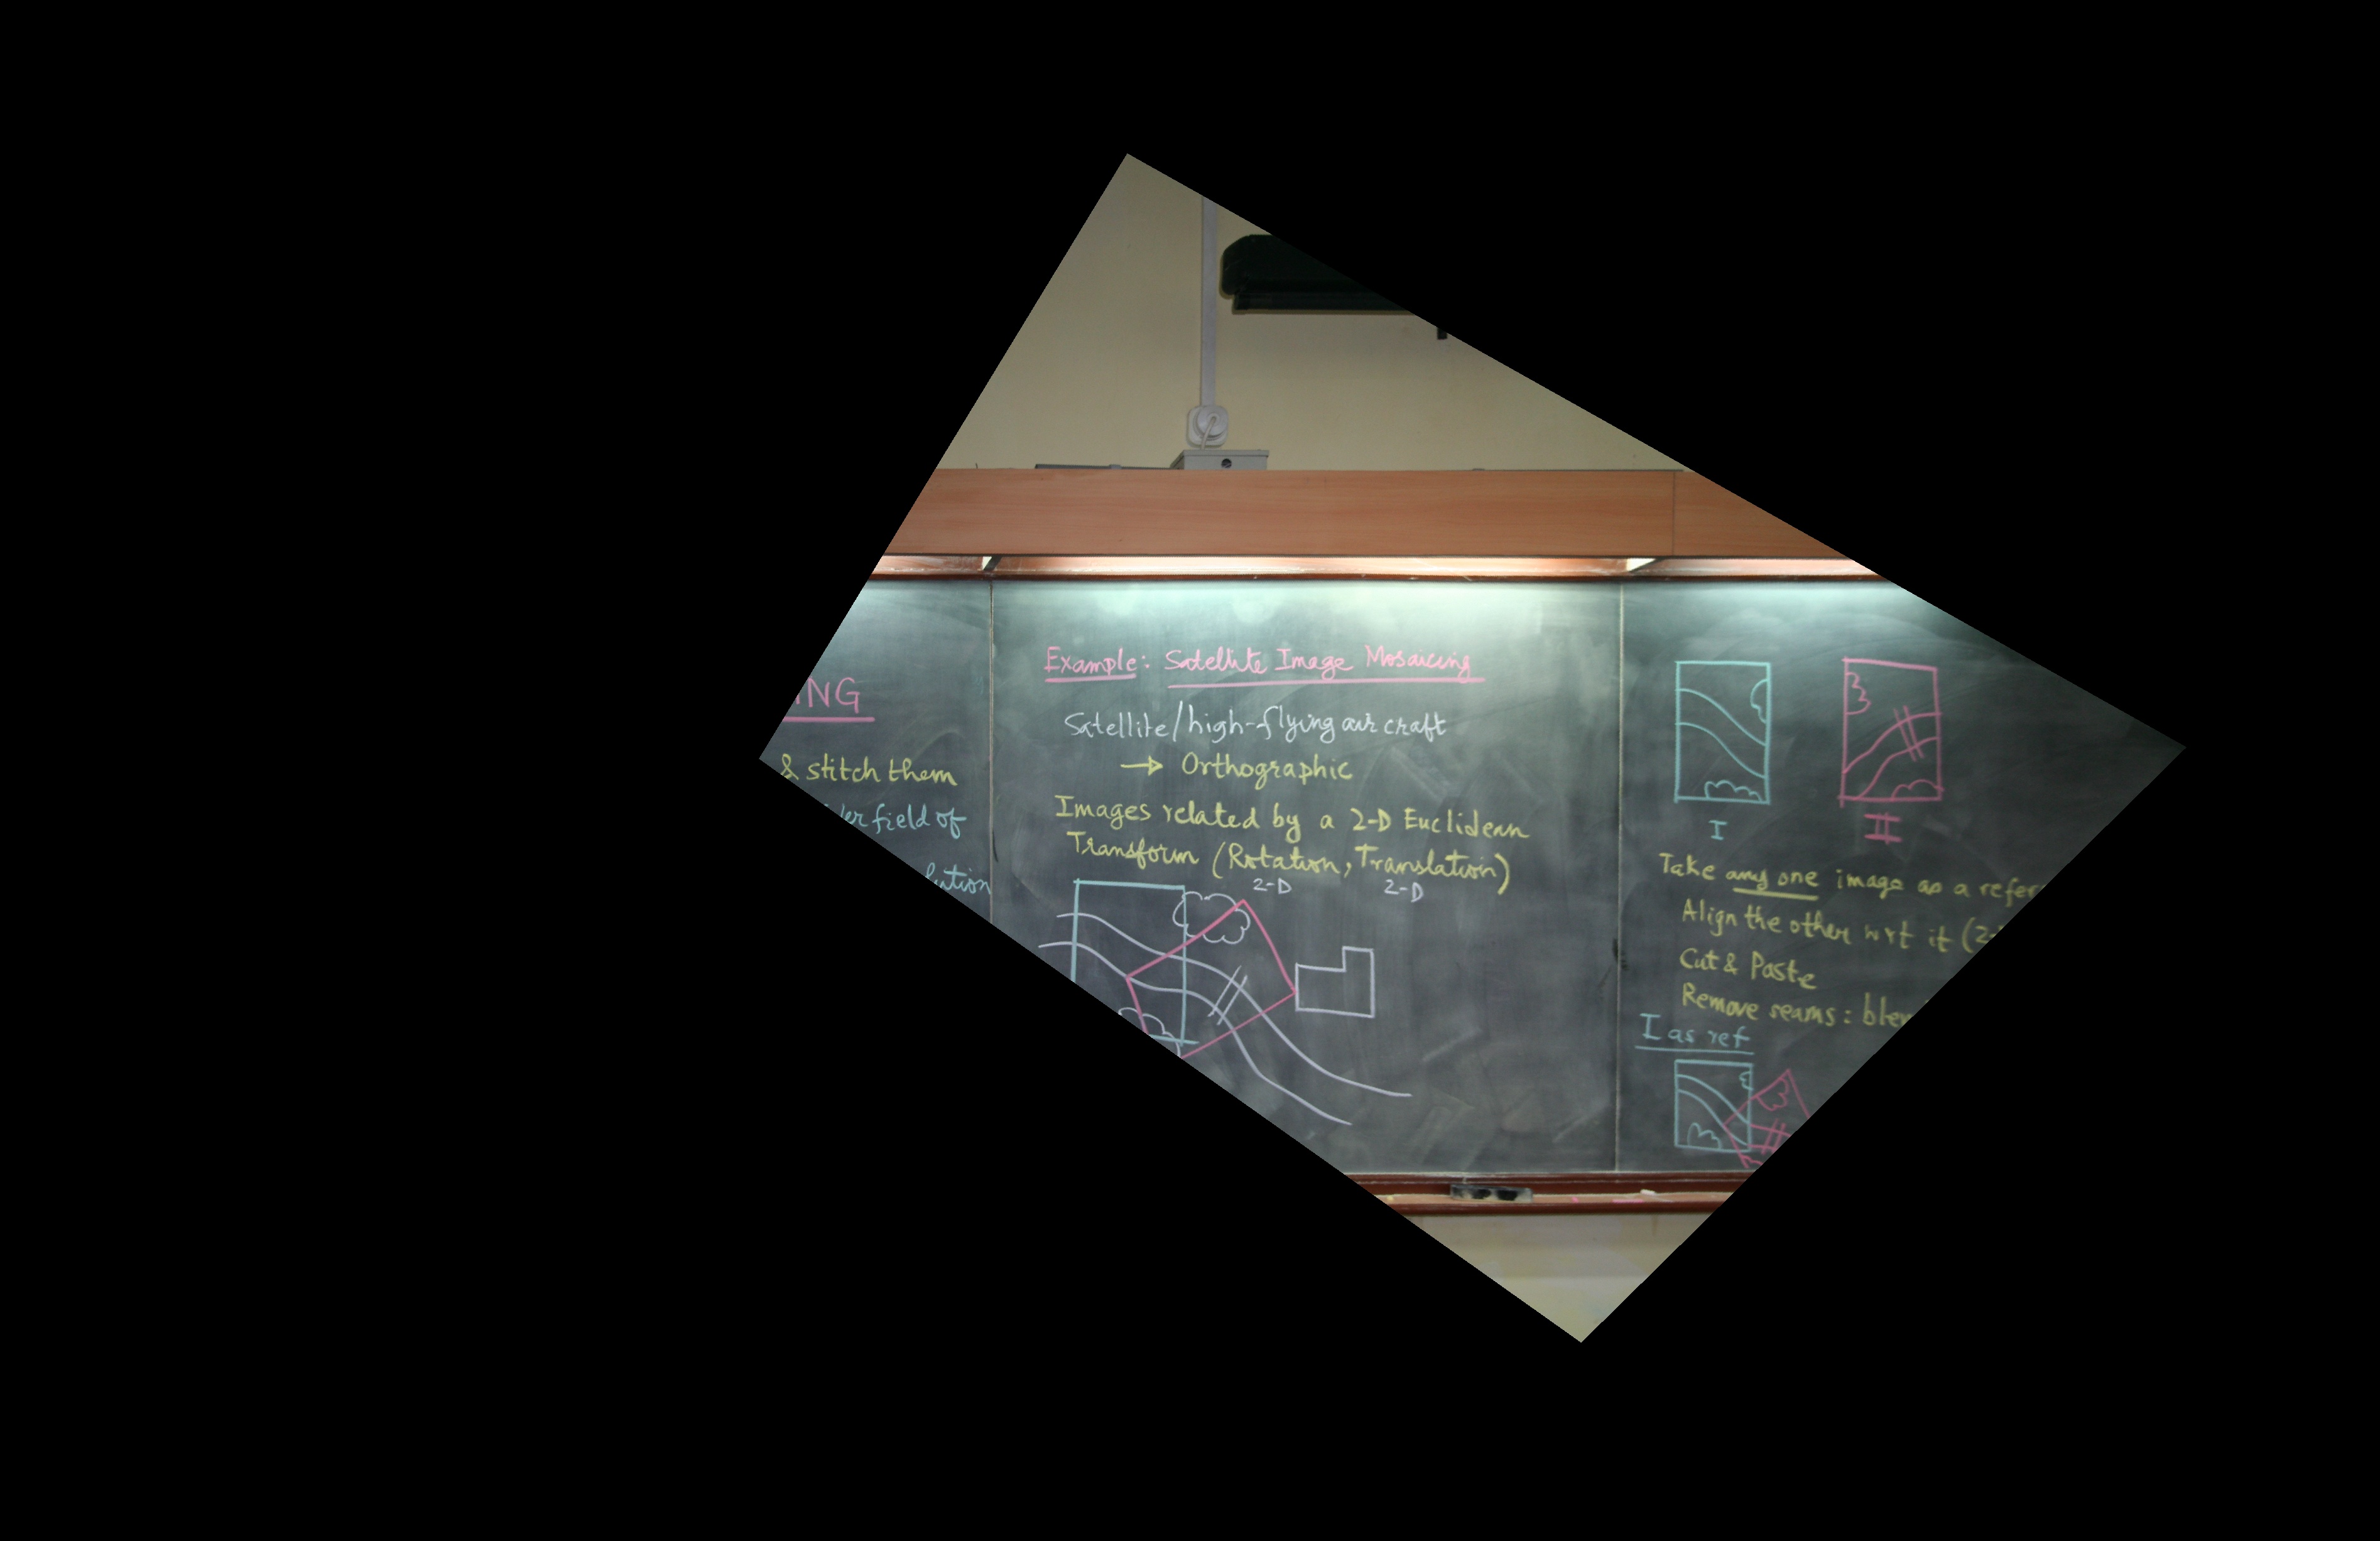 & stitch them
field of
Example: Satellite Image Mosaicing
Satellite/high-flying air craft
→ Orthographic
Images related by a 2-D Euclidean
Transform (Rotation, Translation)
2-D 2-D
I II
Take any one image as a
Align the other wrt it
Cut & Paste
Remove seams:
I as ref